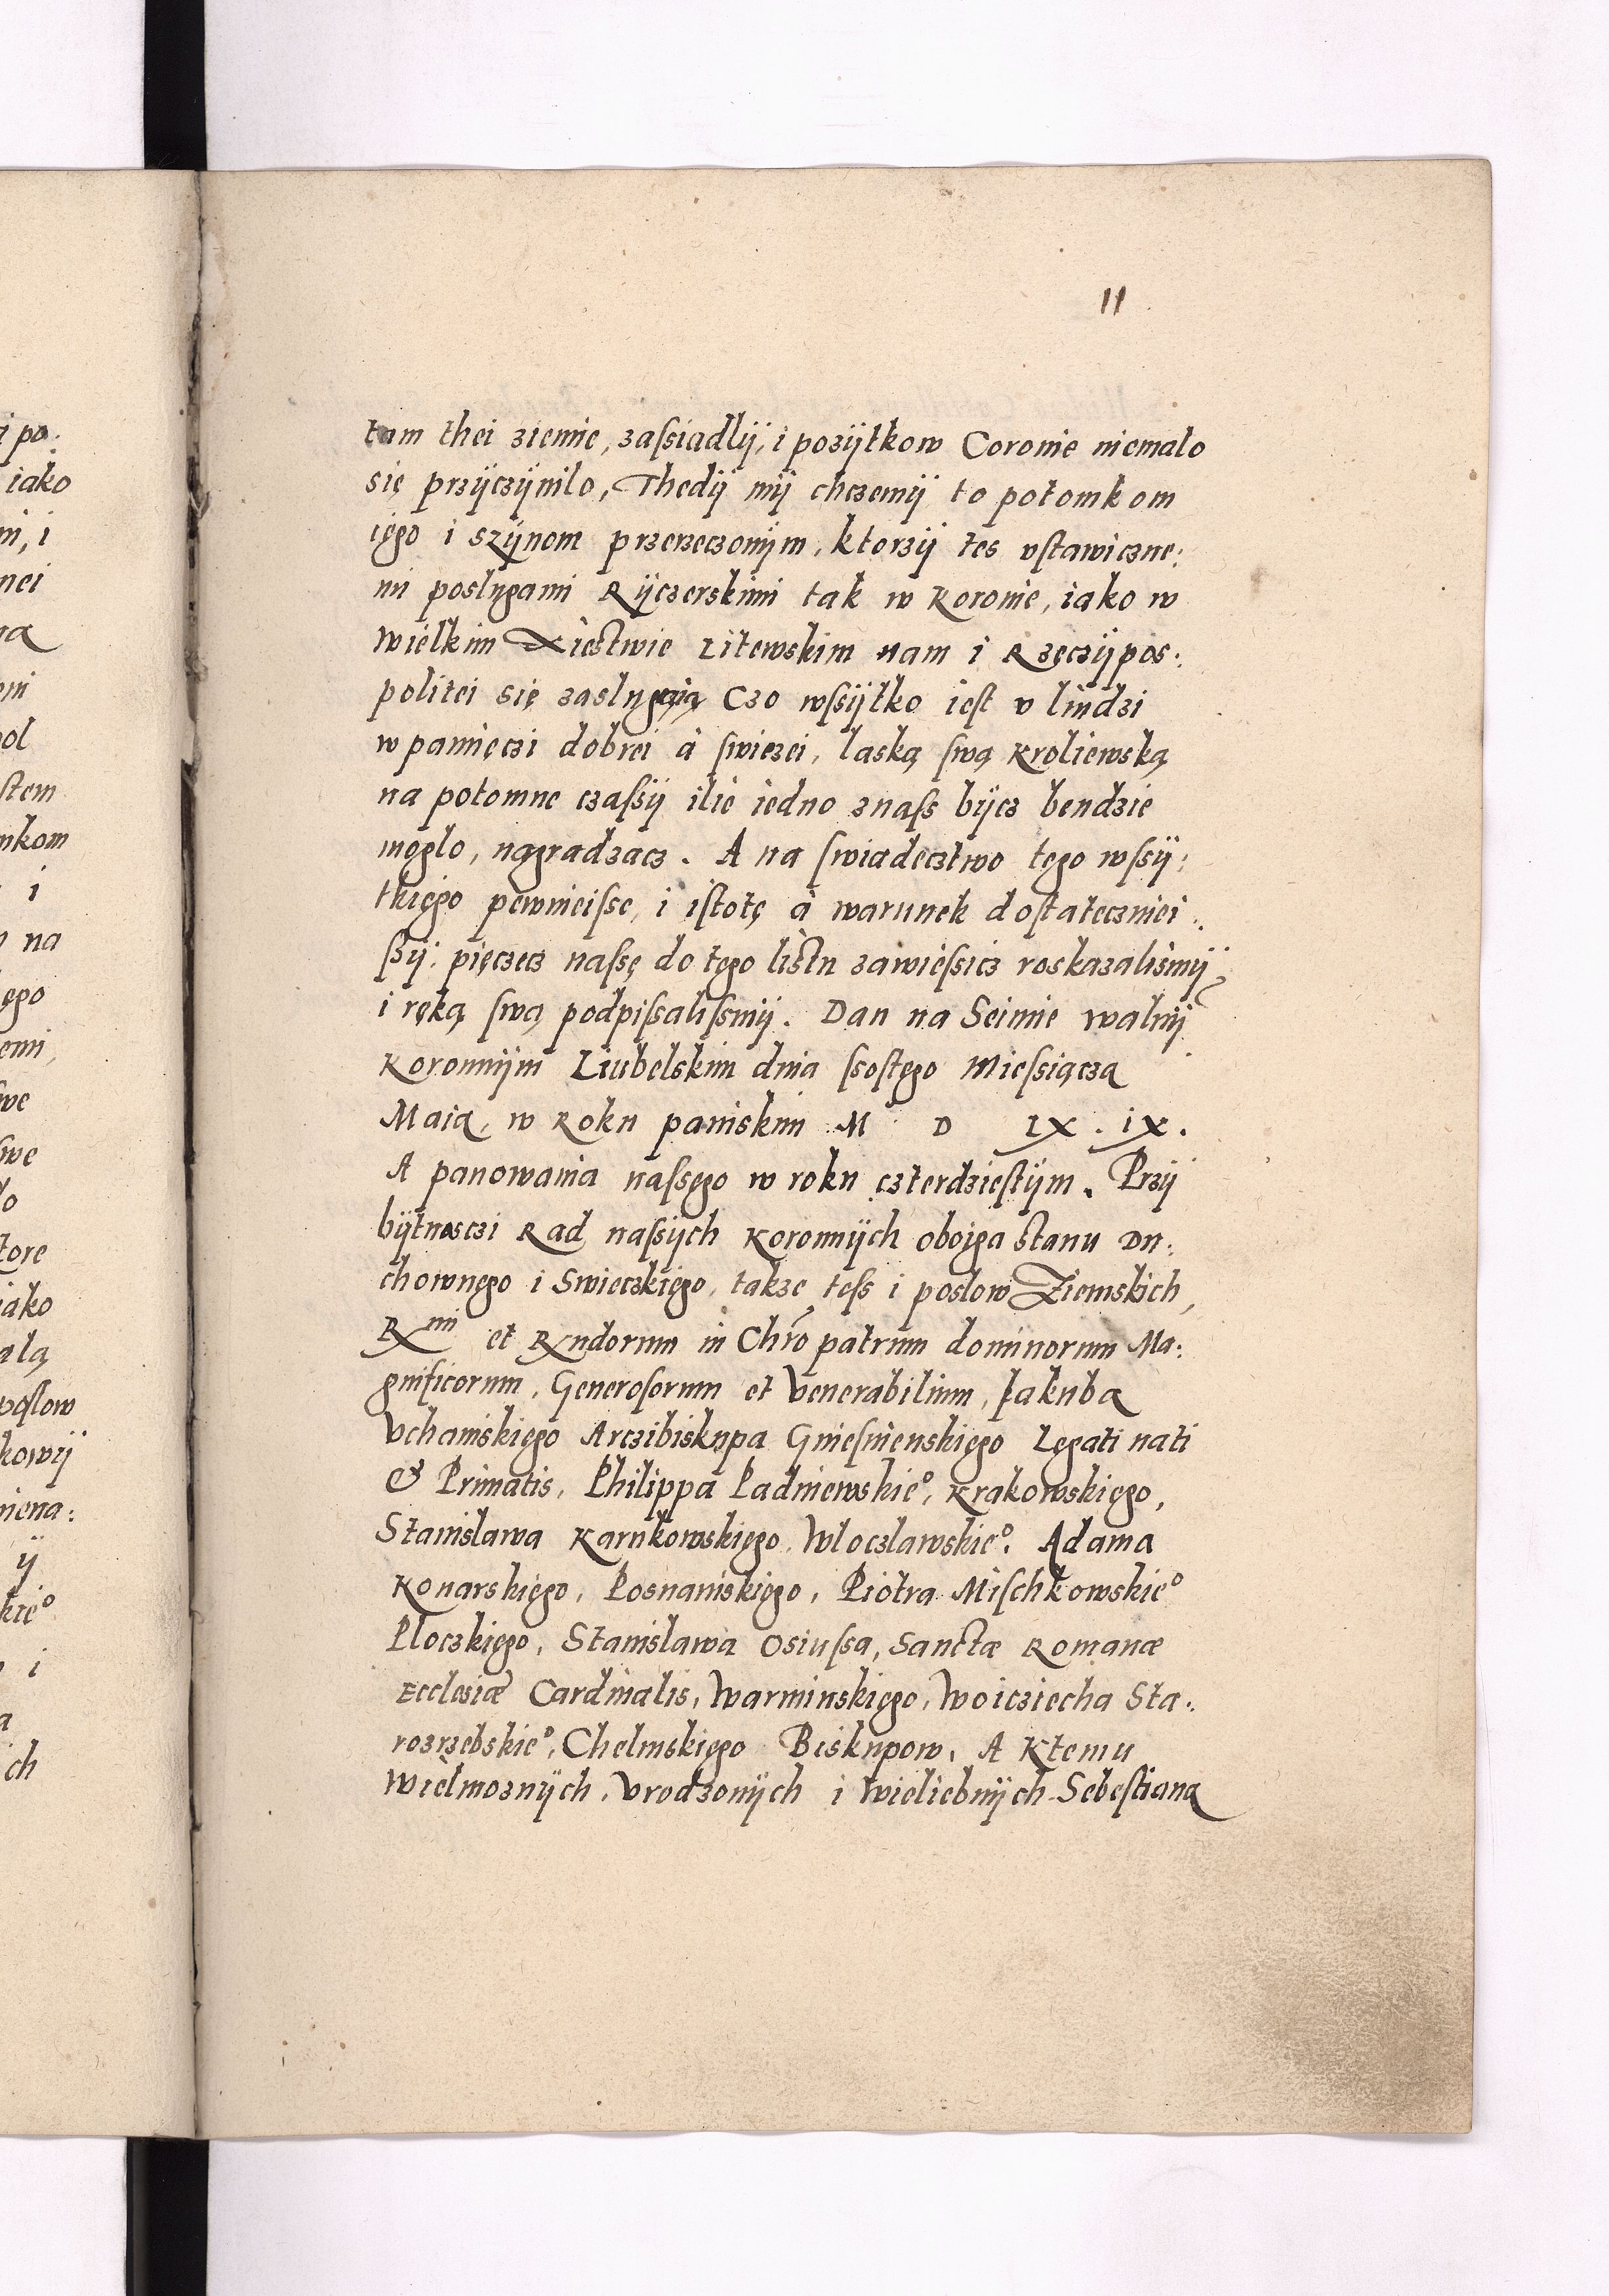 11
tam thei ziemie, zaſsiadlÿ, i pozÿtkow Coronie niemalo
się przÿczÿnilo, Thedÿ mÿ chczemÿ to potomkom
iego i szÿnom przerzeczonÿm, ktorzÿ tes vſtawiczne:
mi poslugami Rÿczerskimi tak w Koronie, iako w
wielkim Xięstwie Litewskim nam i Rzeczÿpos:
politei się zaslugaią Czo wſsÿtko ieſt v liudzi
w pamięczi dobrei à ſwiezei, laską ſwą Kroliewską
na potomne czaſsÿ ilie iedno znaſs bÿcz bendzie
moglo, nagradzacz. A na ſwiadecztwo tego wſsÿ:
tkiego pewnieiſse, i iſtotę à warunek doſtatecznieì:
ſzÿ, pięczecz naſsę do tego liſtu zawieſsicz roskazalismÿ
i ręką ſwą podpiſsaliſmÿ. Dan na Seimie walnÿ
Koronnÿm Liubelskim dnia ſsoſtego Mieſsiącza
Maia, w Roku paniskim M D LX. IX.
A panowania naſsego w roku czterdzieſtÿm. Przÿ
bÿtnosczi Rad naſsÿch Koronnÿch oboiga stanu Du:
chownego i Swieczkiego, takze teſs i poslow Ziemskich,
Rmi et Rndorum in Chro patrum dominorum Ma:
gnificorum, Generoſorum et Venerabilium, Jakuba
Vchaniskiego Arczibiskupa Gnieſnienskiego Legati nati
& Primatis, Philippa Padniewskieº, Krakowskiego,
Stanislawa Karnkowskiego, Wloczlawskieº. Adama
Konarskiego, Posnaniskiego, Piotra Miſchkowskieº
Ploczkiego, Stanislawa Osiuſsa, Sanctæ Romanæ
Ecclesiæ Cardinalis, Warminskiego, Woicziecha Sta:
rozrzebskieº, Chelmskiego Biskupow, A Ktemu
Wielmoznÿch, Vrodzonÿch i Wieliebnÿch Sebeſtiana